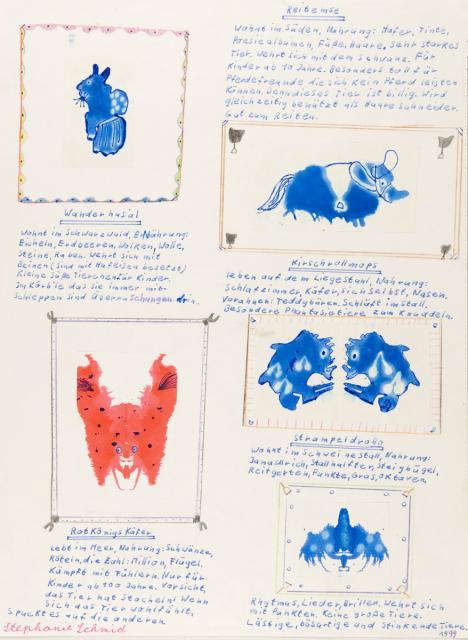 Reitemse
Wohnt im Süden, Nahrung: Hafer, Tinte,
Poesiealbumen, Füße, Haare. Sehr starkes
Tier. Wehrt sich mit dem Schwanz. Für
Kinder ab 10 Jahre. Besonders toll für
Pferdefreunde die sich kein Pferd leisten
können. Denn dieses Tier ist billig. Wird
gleichzeitig benützt als
Gut zum Reiten.
Wanderhusal
Wohnt im Schwarzwuid, Ernährung:
Eicheln, Erdbeeren, Wolken, Wolle,
Steine, Raben. Wehrt sich mit
Beinen (sind mit Hufeisen besetzt)
Kleine süße Tierchen für Kinder.
Im Körble das sie immer mit-
schleppen sind Überraschungen drin.
Kirschrollmops
Leben auf dem Liegestuhl, Nahrung:
Schlafzimmer, Käfer, sich selbst, Nasen.
Vorahnen: Teddybären, Schläft im Stall.
Besondere Phantasietiere zum Knuddeln.
Strampeldrollo
Wohnt im Schweinestall, Nahrung:
Stallhalfter, Steigbügel,
Reitgerten, Punkte, Gras, Oktaven,
Rhytmus, Lieder, Brillen, Wehrt sich
mit Punkten, Keine große Tiere.
Lästige, bösartige and stinkende Tiere.
1999
Rotkönigskäfer
Lebt im Meer, Nahrung: Schwänze,
Röteln, die Zahl: Million, Flügel.
Kämpft mit Fühlern. Nur für
Kinder ab 100 Jahre. Vorsicht,
das Tier hat Stacheln! Wenn
sich das Tier wohlfühlt,
spuckt es auf die anderen
Stephanie Schmid